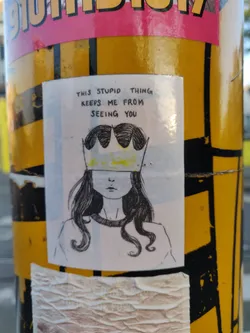 THIS STUPID THING
KEEPS ME FROM
SEEING YOU